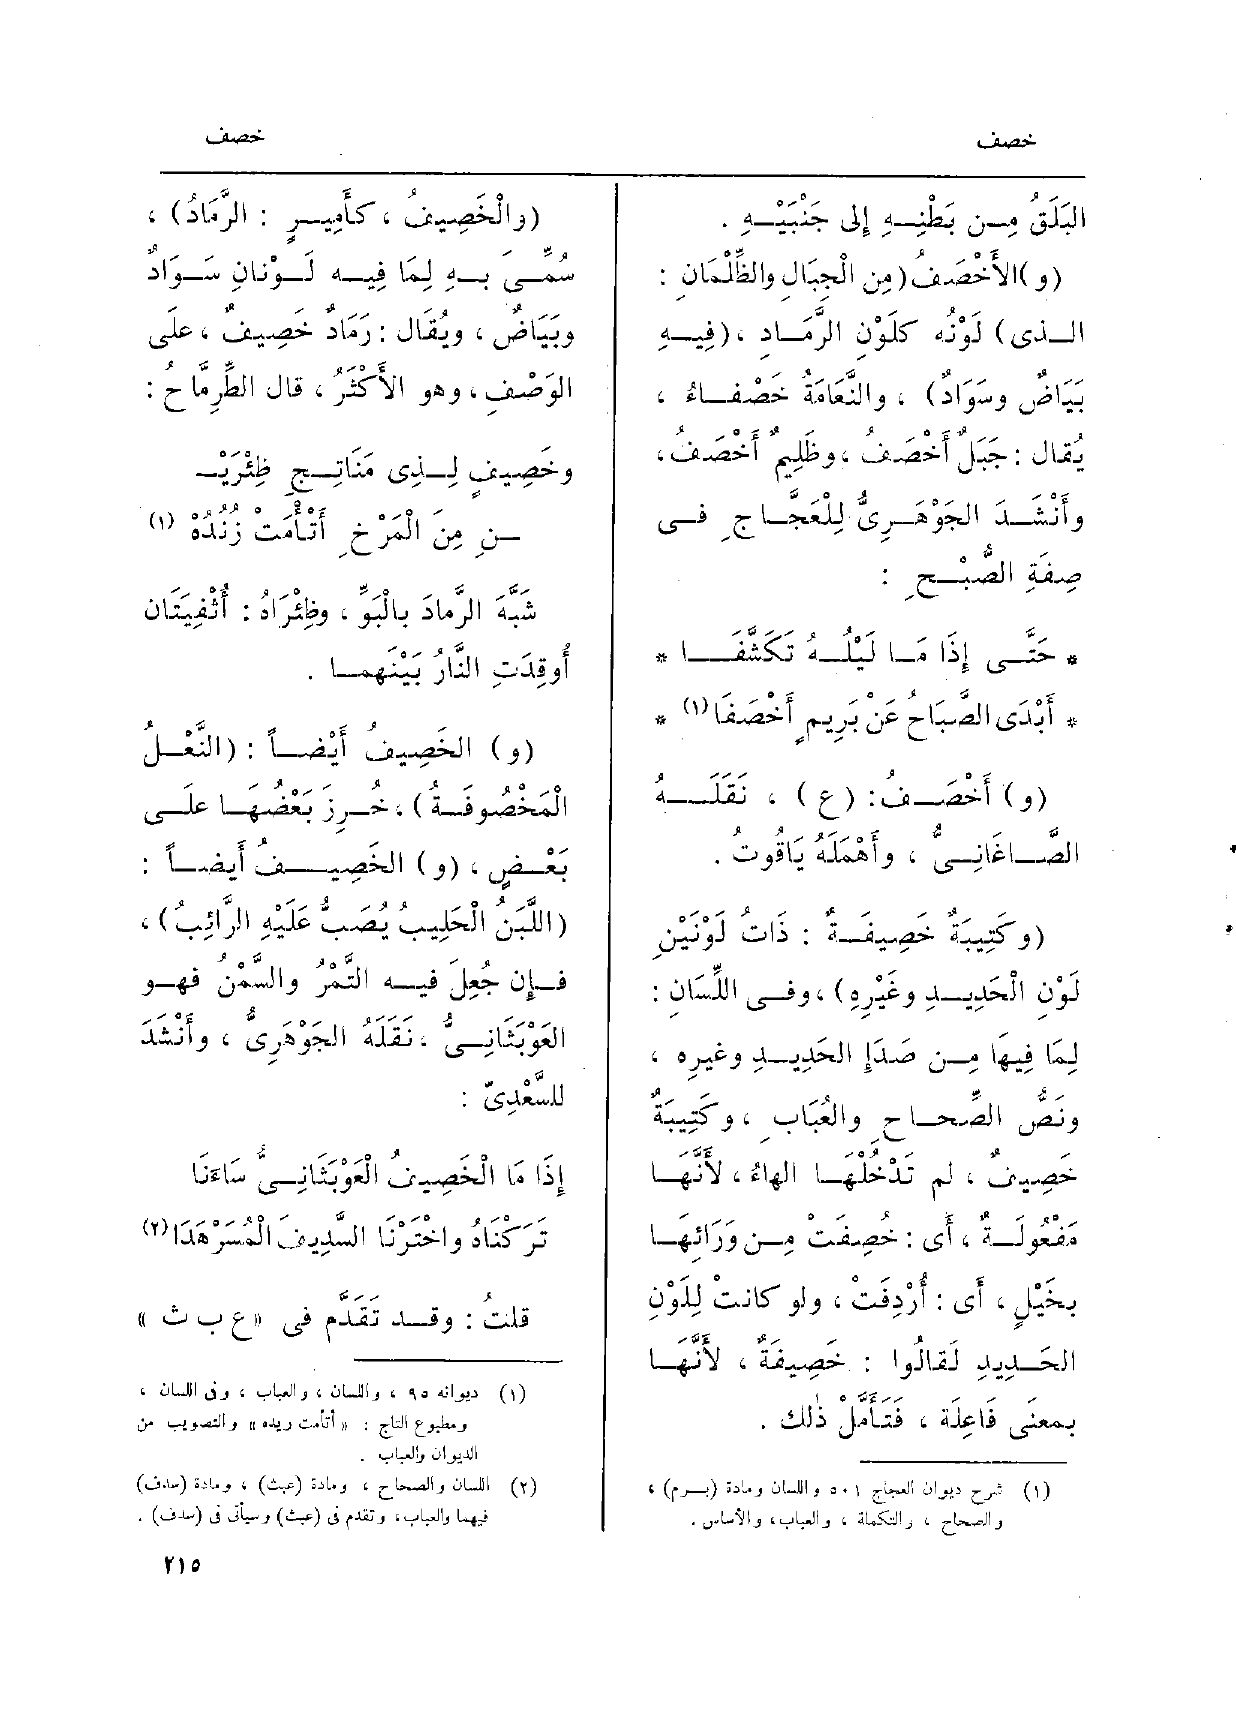 خصف
خصف
البَلَقُ مِـن بَطْنِـهِ إِلى جَنْبَيْـهِ .
(و)الأَخْصَفُ(مِن الْجِبَالِ والظِّلْمَانِ :
الـذى) لَوْنُه كلَوْنِ الرَّمَـادِ ،(فِيـهِ
بَيَاضٌ وسَوَادٌ) ، والنَّعَامَةُ خَصْفَـاءُ ،
يُقال : جَبَلٌ أَخْصَفُ ،وظَلِيمٌ أَخْصَفُ،
وأَنْشَـدَ الجَوْهَـرِىُّ لِلْعَجَّـاجِ فـى
صِفَةِ الصُّبْـحِ :
* حَتَّـى إِذَا مَـا لَيْلُـهُ تَكَشَّفَـا *
* أَبْدَى الصَّبَاحُ عَنْ بَرِيمٍ أَخْصَفَا(١) *
(و) أَخْصَـفُ: (ع) ، نَقَلَـهُ
الصَّـاغَانِـىُّ ، وأَهْمَلَهُ يَاقُوتُ .
(وكَتِيبَةٌ خَصِيفَـةٌ : ذَاتُ لَوْنَيْنِ
لَوْنِ الْحَدِيـدِ وغَيْرِهِ) ،وفـى اللِّسَانِ :
لِمَا فِيهَا مِـن صَدَإِ الحَدِيـدِ وغيرِه ،
ونَصُّ الصِّحـاحِ والعُبَابِ ، وكَتِيبَةٌ
خَصِيفٌ ، لم تَدْخُلْهـا الهاءُ ، لأَنَّهـا
مَفْعُولَـةٌ ، أى : خُصِفَتْ مِـن وَرَائِهَـا
بخَيْلٍ ، أَى : أُرْدِفَتْ ، ولو كانتْ لِلَوْنِ
الحَـدِيدِ لَقالُوا : خَصِيفَةٌ ، لأَنَّهَـا
بمعنَى فَاعِلَة ، فَتَأَمَّلْ ذٰلك .
(١) شرح ديوان العجاج ٥٠١ واللسان ومادة (بـرم) ،
والصحاح ، والتكملة ، والعباب، والأساس .
(والْخَصِيفُ ، كأَمِيـرٍ : الرَّمَادُ) ،
سُمِّـىَ بـهِ لِمَا فِيـه لَـوْنانِ سَـوَادٌ
وبَيَاضٌ ، ويُقَال : رَمَادٌ خَصِيفٌ ، على
الوَصْفِ ، وهو الأَكْثَرُ ، قال الطِّرِمَّاحُ :
وخَصِيفٍ لِـذِى مَنَاتِـجِ ظِئْرَيْـ
ـنِ مِنَ الْمَرْخِ أَتْأَمَتْ زُنُدُهْ (١)
شَبَّهَ الرَّمادَ بالْبَوِّ ، وظِئْرَاهُ : أُثْفِيَتَان
أُوقِدَتِ النَّارُ بَيْنَهمـا .
(و) الخَصِيفُ أَيْضـاً : (النَّعْـلُ
الْمَخْصُوفَـةُ) ، خُـرِزَ بَعْضُهـا علَـى
بَعْـضٍ ، (و) الخَصِيـفُ أَيضـاً :
(اللَّبَنُ الْحَلِيبُ يُصَبُّ عَلَيْهِ الرَّائِبُ) ،
فـإِن جُعِلَ فيـه التَّمْرُ والسَّمْنُ فهـو
العَوْبَثَانِـىُّ ، نَقَلَهُ الجَوْهَرِىُّ ، وأَنْشَدَ
للسَّعْدِىّ :
إِذَا مَا الْخَصِيفُ الْعَوْبَثَانِـىُّ سَاءَنَا
تَرَكْنَاهُ واخْتَرْنَا السَّدِيفَ الْمُسَرْهَدَا(٢)
قلتُ : وقـد تَقَدَّم فى «ع ب ث »
(١) ديوانه ٩٥ ، واللسان ، والعباب ، وفى اللسان ،
ومطبوع التاج : « أتأمت ربده » والتصويب من
الديوان والعباب .
(٢) اللسان والصحاح ، ومادة (عبث) ، ومادة (سدف)
فيهما والعباب، وتقدم فى (عبث) وسيأتى فى (سدف) .
٢١٥